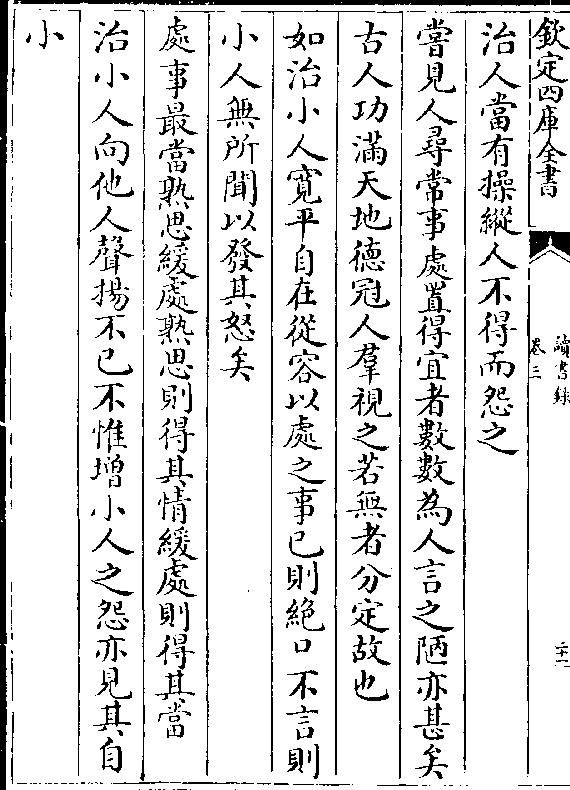 欽定四庫全書
讀書錄
卷三
二十一
治人當有操縱人不得而怨之
嘗見人尋常事處置得宜者數數為人言之陋亦甚矣
古人功滿天地德冠人羣視之若無者分定故也
如治小人寛平自在從容以處之事已則絶口不言則
小人無所聞以發其怒矣
處事最當熟思緩處熟思則得其情緩處則得其當
治小人向他人聲揚不已不惟增小人之怨亦見其自
小